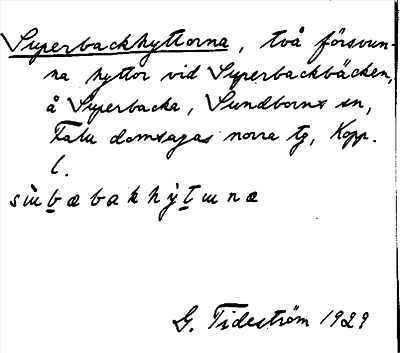 Superbackhyttorna, två försvun-
na hyttor vid Superbackbäcken,
å Superbacka, Sundborns sn,
Falu domsagas norra tg, Kopp.
l.
sùbæbakhỳtɯnæ
G. Tideström 1929